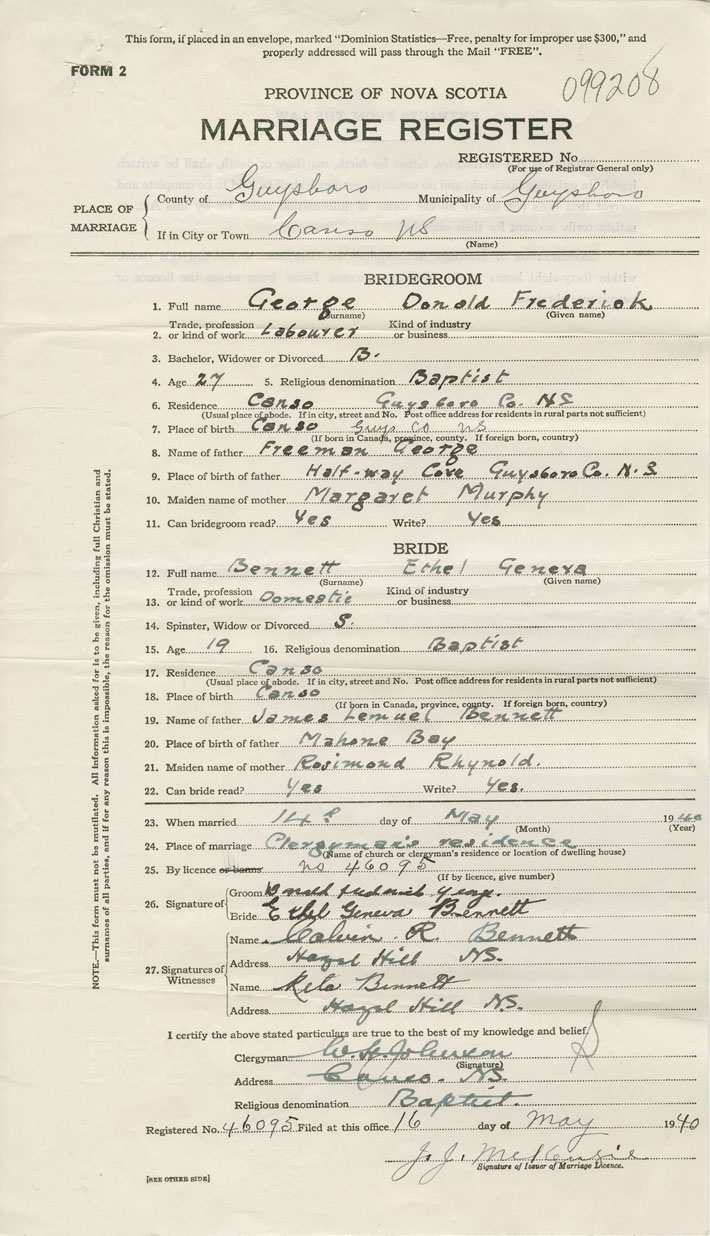 This form, if placed in an envelope, marked "Dominion Statistics—Free, penalty for improper use $300," and
properly addressed will pass through the Mail "FREE".
FORM 2
099208
PROVINCE OF NOVA SCOTIA
MARRIAGE REGISTER
REGISTERED No.
(For use of Registrar General only)
PLACE OF MARRIAGE
County of Guysboro Municipality of Guysboro
If in City or Town Canso NS
(Name)
BRIDEGROOM
1. Full name George Donald Frederick
(Surname) (Given name)
Trade, profession Kind of industry
2. or kind of work Labourer or business
3. Bachelor, Widower or Divorced B.
4. Age 27 5. Religious denomination Baptist
6. Residence Canso Guysboro Co. NS
(Usual place of abode. If in city, street and No. Post office address for residents in rural parts not sufficient)
7. Place of birth Canso Guys Co NS
(If born in Canada, province, county. If foreign born, country)
8. Name of father Freeman George
9. Place of birth of father Half-way Cove Guysboro Co. N.S
10. Maiden name of mother Margaret Murphy
11. Can bridegroom read? Yes Write? Yes
BRIDE
12. Full name Bennett Ethel Geneva
(Surname) (Given name)
Trade, profession Kind of industry
13. or kind of work Domestic or business
14. Spinster, Widow or Divorced S.
15. Age 19 16. Religious denomination Baptist
17. Residence Canso
(Usual place of abode. If in city, street and No. Post office address for residents in rural parts not sufficient)
18. Place of birth Canso
(If born in Canada, province, county. If foreign born, country)
19. Name of father James Lemuel Bennett
20. Place of birth of father Mahone Bay
21. Maiden name of mother Rosimond Rhynold.
22. Can bride read? Yes Write? Yes.
23. When married 14th day of May 1940
(Month) (Year)
24. Place of marriage Clergyman's residence
(Name of church or clergyman's residence or location of dwelling house)
25. By licence or banns no 46095
(If by licence, give number)
26. Signature of
Groom Donald Frederick George.
Bride Ethel Geneva Bennett
27. Signatures of Witnesses
Name Calvin R. Bennett
Address Hazel Hill NS.
Name Bennett
Address Hazel Hill N.S.
I certify the above stated particulars are true to the best of my knowledge and belief.
Clergyman W. H. Johnson
(Signature)
Address Canso. NS.
Religious denomination Baptist.
Registered No. 46095 Filed at this office 16 day of May 1940
J. J. McKenzie
Signature of Issuer of Marriage Licence.
[SEE OTHER SIDE]
NOTE.—This form must not be mutilated. All information asked for is to be given, including full Christian and
surnames of all parties, and if for any reason this is impossible, the reason for the omission must be stated.